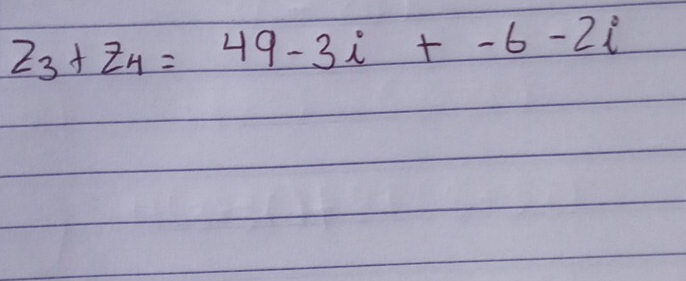 Z₃ + Z₄ = 49 - 3i + -6 - 2i